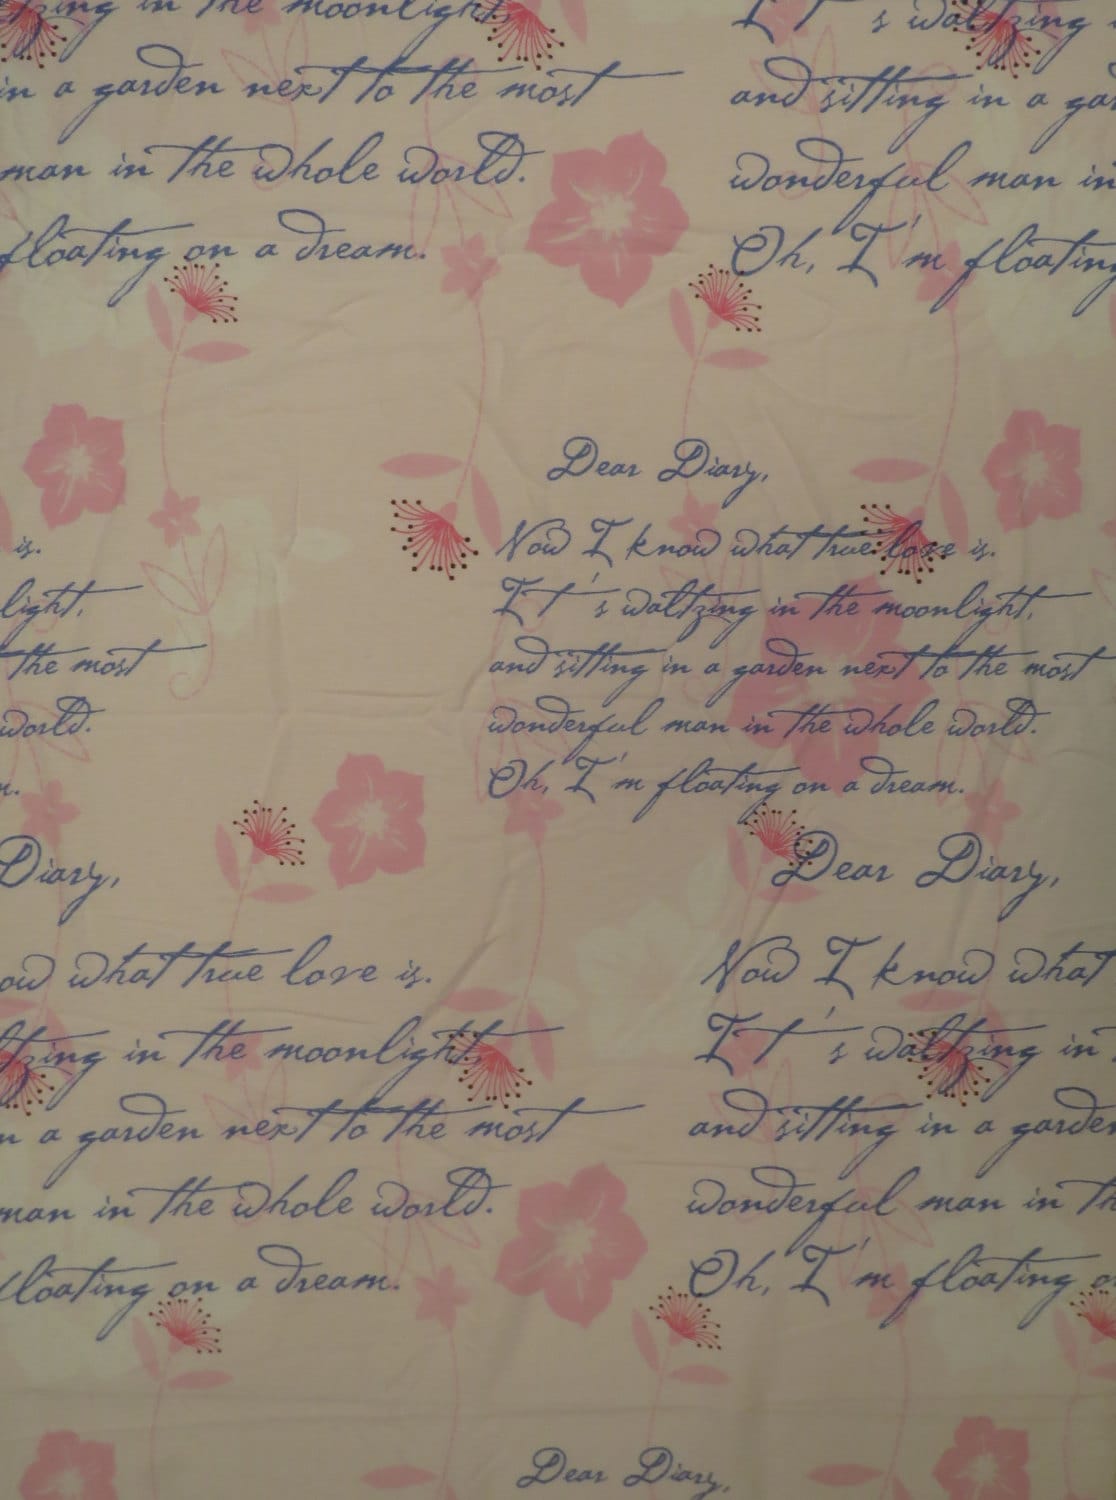 zing in the moonlight,
in a garden next to the most
man in the whole world.
floating on a dream.
It's waltzing
and sitting in a gar
wonderful man in
Oh, I'm floating
is.
light,
the most
world.
m.
Dear Diary,
Now I know what true love is.
It's waltzing in the moonlight,
and sitting in a garden next to the most
wonderful man in the whole world.
Oh, I'm floating on a dream.
Diary,
ow what true love is.
ltzing in the moonlight,
n a garden next to the most
man in the whole world.
floating on a dream.
Dear Diary,
Now I know what
It's waltzing in
and sitting in a garden
wonderful man in th
Oh, I'm floating o
Dear Diary,